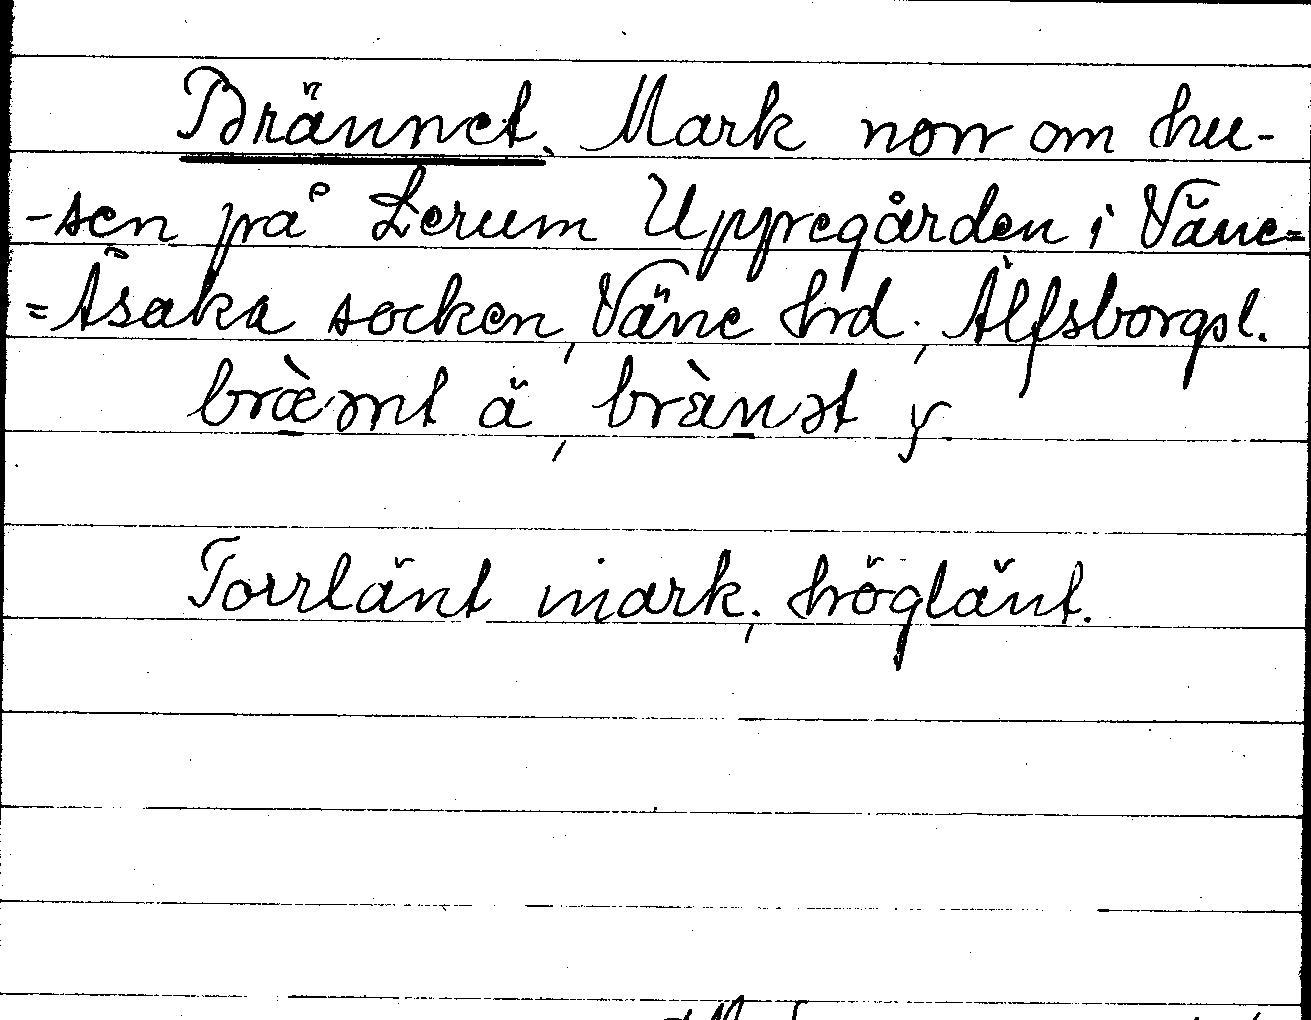 Brännet. Mark norr om hu-
-sen på Lerum Uppregården i Väne=
=Åsaka socken, Väne hrd; Älfsborgsl.
bræ̀nt ä, brànət y
Torrlänt mark; höglänt.